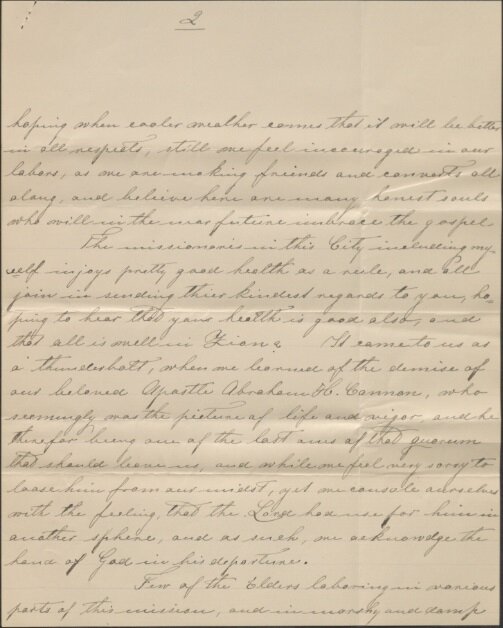 2
hoping when cooler weather comes that it will be better
in all respects, still we feel incouraged in our
labors, as we are making friends and converts all
along, and believe here are many honest souls
who will in the near future imbrace the gospel
The missionaries in this City including my
self injoys pretty good health as a rule, and all
join in sending thier kindest regards to you, ho
ping to hear that your health is good also, and
that all is well in Zion. It came to us as
a thunderbolt, when we learned of the demise of
our beloved Apostle Abraham H. Cannon, who
seemingly was the picture of life and vigor, and he
therefor being one of the last ones of that quorum
that should leave us, and while we feel very sorry to
loose him from our midst, yet we console ourselves
with the feeling, that the Lord had use for him in
another sphere, and as such, we acknowdge the
hand of God in his departure.
Few of the Elders laboring in various
parts of this mission, and in marshy and damp